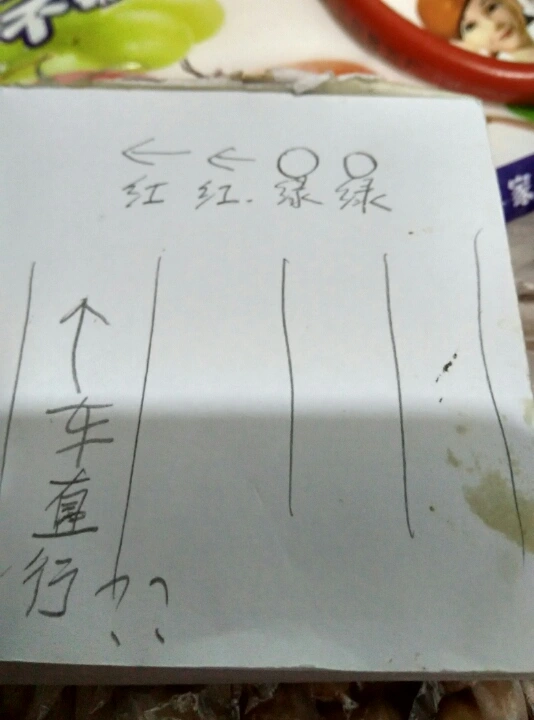 ← ← ○ ○
红 红. 绿 绿
↑
车
直
行
??
家